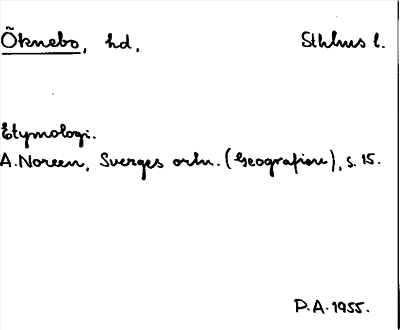 Öknebo, hd, Sthlms l.
Etymologi.
A. Noreen, Sverges ortn. (Geografien), s. 15.
P.A. 1955.